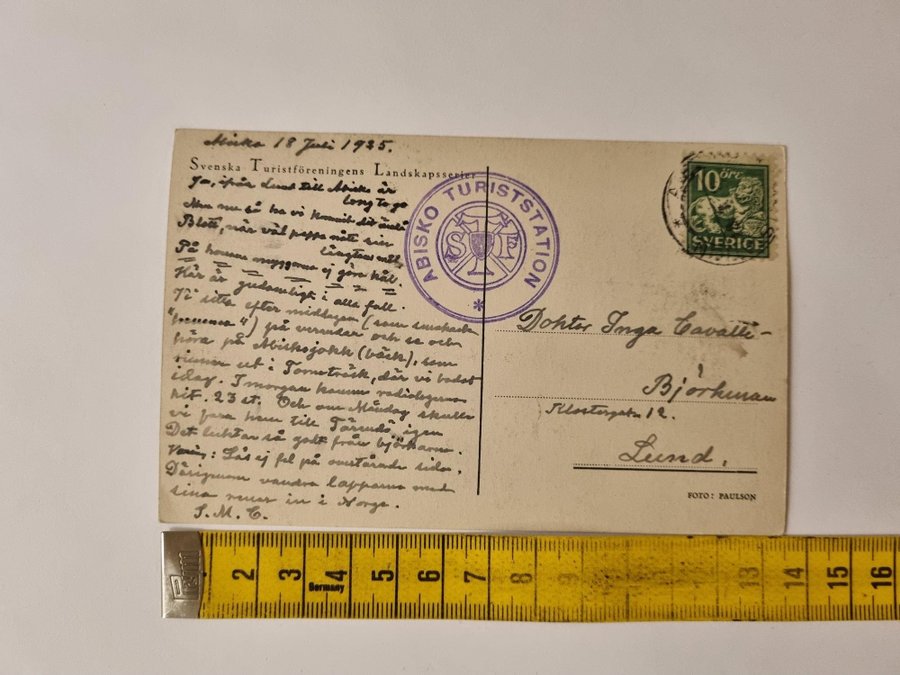 Abisko 18 Juli 1925.
Svenska Turistföreningens Landskapsserier
Ja, ifrån Lund till Abisko är
long to go
Men nu så ha vi kommit dit ändå
Blott, när väl peppe nått sin
längtans mål,
På honom myggorna ej göra hål.
Här är gudomligt i alla fall.
Vi sitta efter middagen (som smakade
"mumma") på verandan och se och
höra på Abiskojokk (bäck), som
rinner ut i Torneträsk, där vi badat
idag. I morgon komma radiologerna
hit. 23 st. Och om Måndag skulle
vi fara hem till Tärendö igen
Det luktar så gott från björkarna.
Läs ej fel på omstående sida.
Därigenom vandra lapparna med
sina renar in i Norge.
S.M.C.
ABISKO TURISTSTATION
STF
10 öre
SVERIGE
Doktor Inga Cavalli-
Björkman
Klosterg. 12.
Lund.
FOTO: PAULSON
Germany
2 3 4 5 6 7 8 9 13 14 15 16